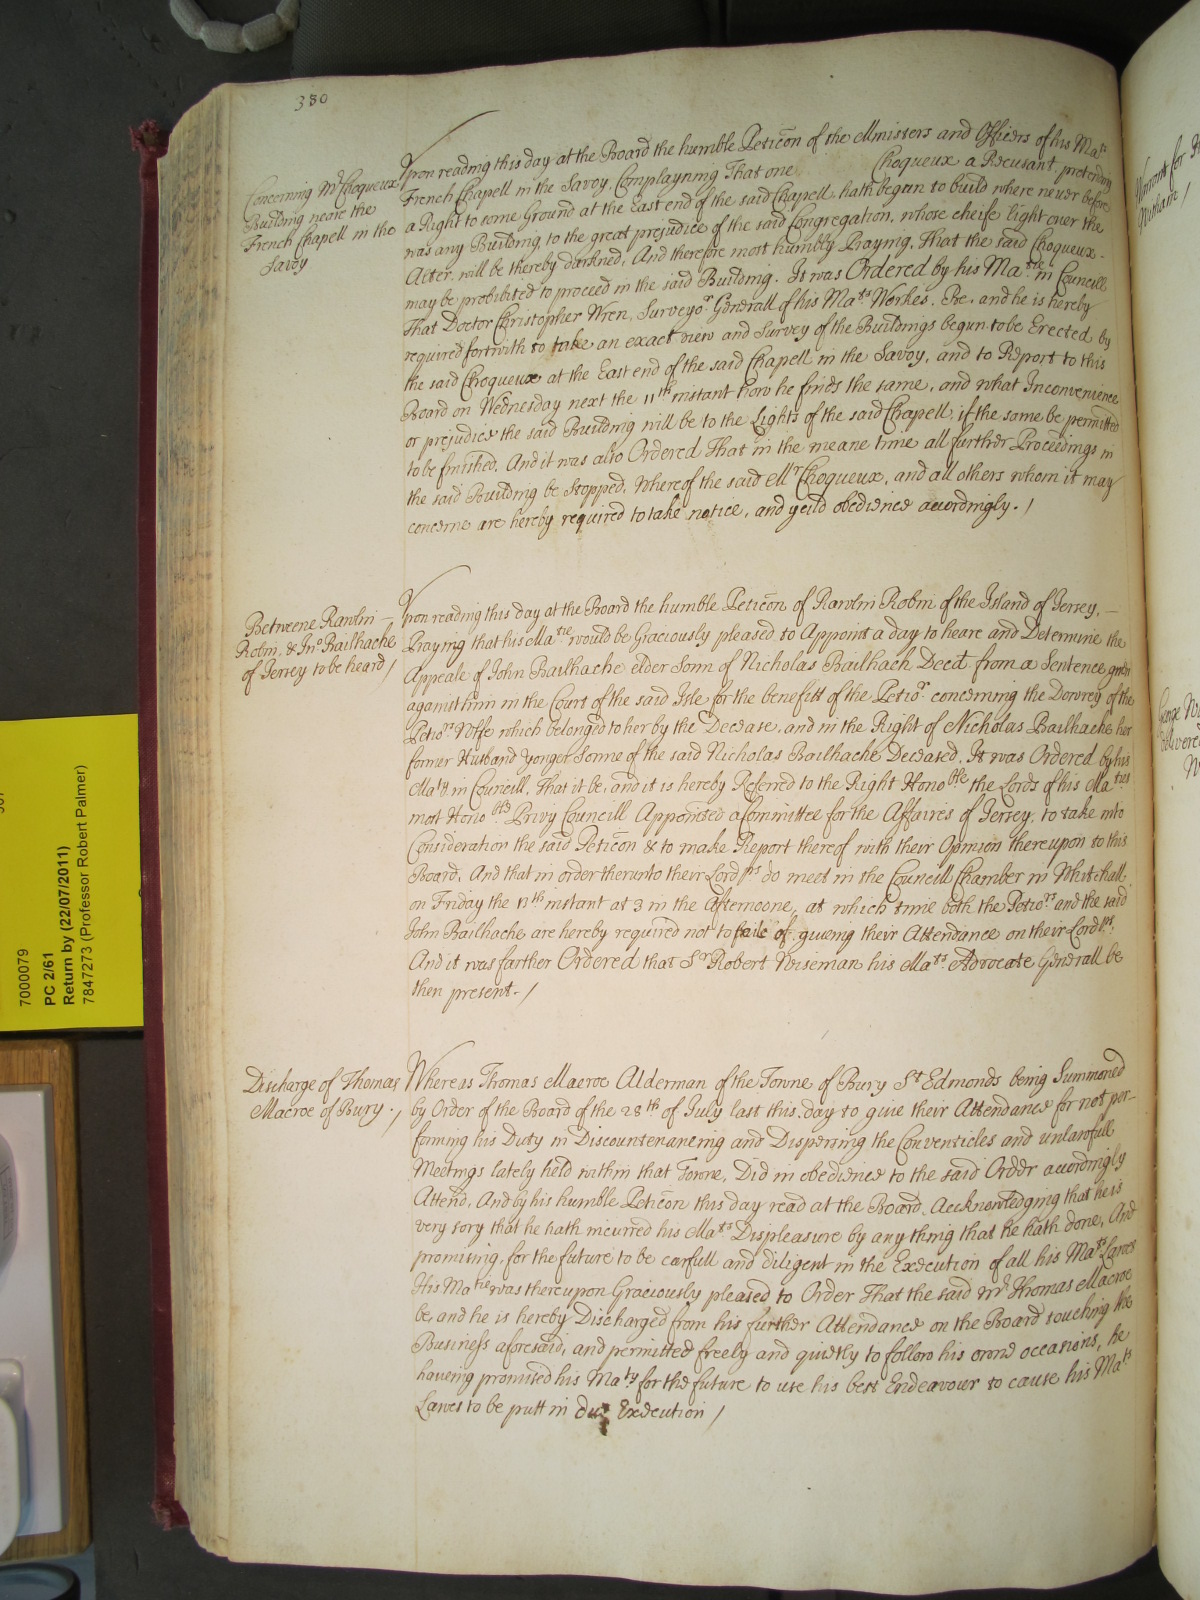 380
Concerning Mr Choqueux
Building neare the
French Chapell in the
Savoy
Upon reading this day at the Board the humble Peticõn of the Ministers and Officers of his Mats
French Chapell in the Savoy, Complayning That one Choqueux a Recusant, pretending
a Right to some Ground at the East end of the said Chapell, hath begun to build where never before
was any Building, to the great prejudice of the said Congregation, whose cheife light over the
Alter, will be thereby darkned, And therefore most humbly Praying, That the said Choqueux
may be prohibited to proceed in the said Building. It was Ordered by his Matie in Councill
That Doctor Christopher Wren, Surveyor Generall of his Mats Workes, Be, and he is hereby
required fortwith to take an exact view and Survey of the Buildings begun to be Erected by
the said Choqueux at the East end of the said Chapell in the Savoy, and to Report to this
Board on Wednesday next the 11th instant how he finds the same, and what Inconvenience
or prejudice the said Building will be to the Lights of the said Chapell, if the same be permitted
to be finished, And it was also Ordered That in the meane time all further Proceedings in
the said Building be Stopped, Whereof the said Mr Choqueux, and all others whom it may
concerne are hereby required to take notice, and yeild obedience accordingly. /
Betweene Rawlin
Robin, & Jno Bailhache
of Jersey to be heard /
Upon reading this day at the Board the humble Peticõn of Rawlin Robin of the Island of Jersey,
Praying that his Matie would be Graciously pleased to Appoint a day to heare and Determine the
Appeale of John Bailhache elder Sonn of Nicholas Bailhach Deced from a Sentence given
against him in the Court of the said Isle for the benefitt of the Petior concerning the Dowrey of the
Petiors Wife which belonged to her by the Decease, and in the Right of Nicholas Bailhache her
former Husband yonger Sonne of the said Nicholas Bailhache Deceased, It was Ordered by his
Matie in Councill, That it be, and it is hereby Referred to the Right Honoble the Lords of his Maties
most Honoble Privy Councill Appointed a Committee for the Affaires of Jersey, to take into
Consideration the said Peticõn & to make Report thereof with their Opinion thereupon to this
Board, And that in order therunto their Lordps do meet in the Councill Chamber in Whitehall
on Friday the 11th instant at 3 in the Afternoone, at which time both the Petiors and the said
John Bailhache are hereby required not to faile of giveing their Attendance on their Lordps.
And it was farther Ordered that Sr Robert Wiseman his Mats Advocate Generall be
then present. /
Discharge of Thomas
Macroe of Bury. /
Whereas Thomas Macroe Alderman of the Towne of Bury St Edmonds being Summoned
by Order of the Board of the 28th of July last this day to give their Attendance for not per-
forming his Duty in Discountenancing and Dispersing the Conventicles and unlawfull
Meetings lately held within that Towne, Did in obedience to the said Order accordingly
Attend, And by his humble Peticõn this day read at the Board, Acknowledging that he is
very sory that he hath incurred his Mats Displeasure by any thing that he hath done, And
promising, for the future to be carfull and diligent in the Execution of all his Mats Lawes
His Matie was thereupon Graciously pleased to Order That the said Mr Thomas Macroe
be, and he is hereby Discharged from his further Attendance on the Board touching the
Business aforesaid, and permitted freely and quietly to follow his owne occasions, he
haveing promised his Maty for the future to use his best Endeavour to cause his Mats
Lawes to be putt in due Execution /
7000079
PC 2/61
Return by (22/07/2011)
7847273 (Professor Robert Palmer)